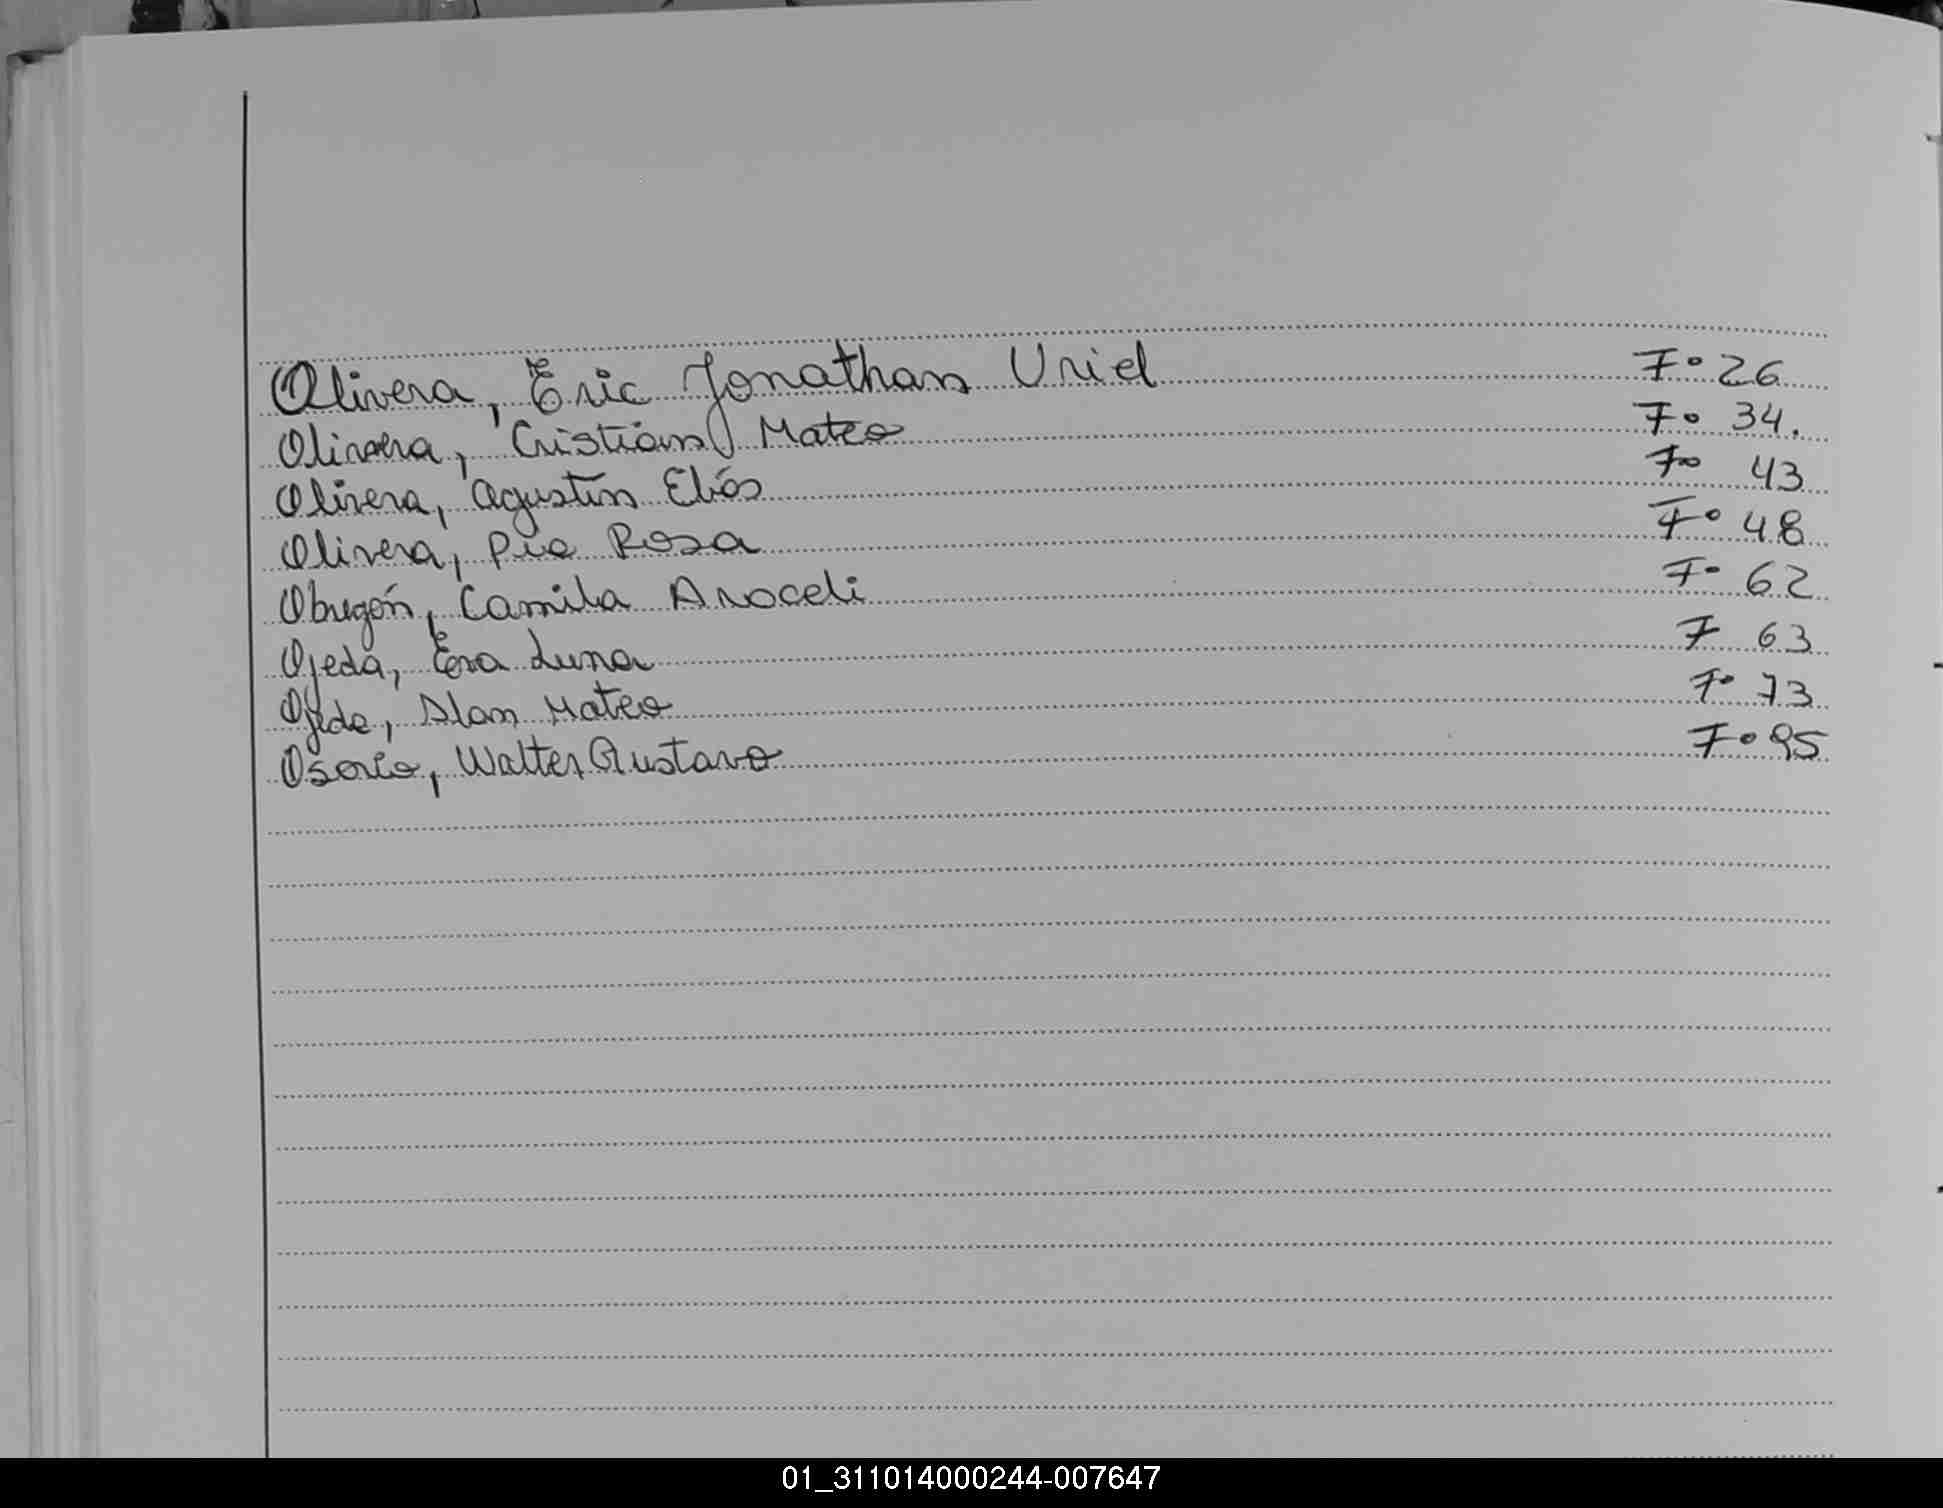 Olivera, Eric Jonathan Uriel F° 26
Olivera, Cristian Mateo F° 34.
Olivera, Agustín Elías F° 43
Olivera, Pía Rosa F° 48
Obregón, Camila Araceli F° 62
Ojeda, Eva Luna F 63
Ojeda, Alan Mateo F° 73
Osorio, Walter Gustavo F° 95
01_311014000244-007647